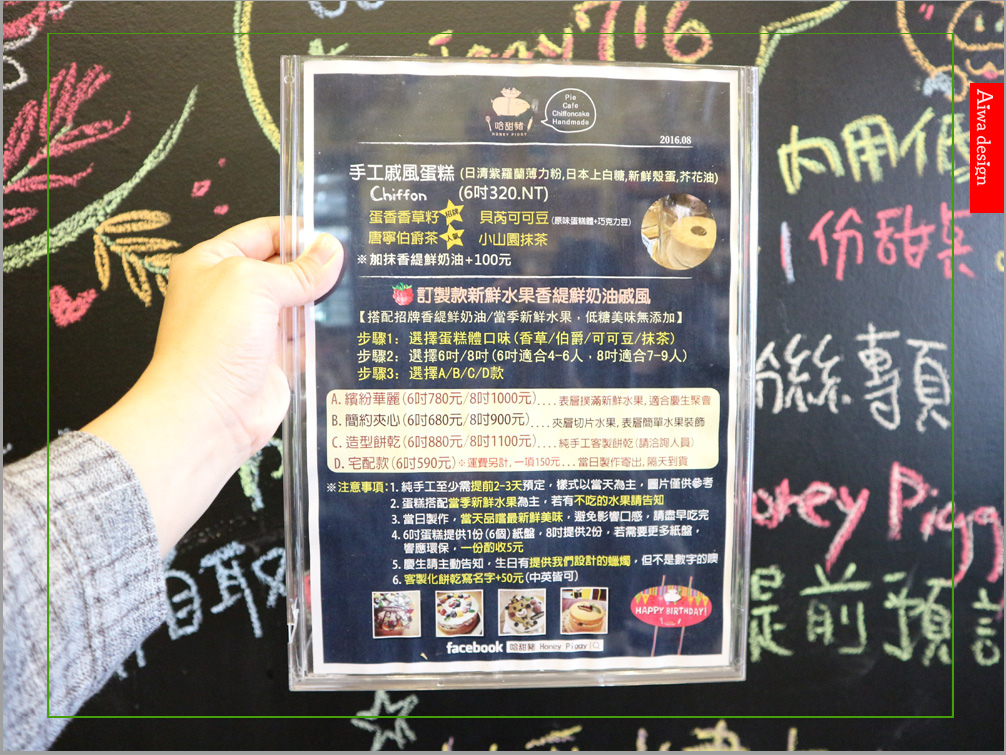 iggy716
Aiwa design
內用低
1份甜
粉絲專頁
Honey Piggy
提前預訂
自取
Pie
Cafe
Chiffoncake
Handmade
哈甜豬
HONEY PIGGY
2016.08
手工戚風蛋糕 (日清紫羅蘭薄力粉,日本上白糖,新鮮殼蛋,芥花油)
Chiffon (6吋320.NT)
蛋香香草籽 招牌 貝芮可可豆 (原味蛋糕體+巧克力豆)
唐寧伯爵茶 人氣 小山園抹茶
※加抹香緹鮮奶油+100元
訂製款新鮮水果香緹鮮奶油戚風
【搭配招牌香緹鮮奶油/當季新鮮水果，低糖美味無添加】
步驟1: 選擇蛋糕體口味(香草/伯爵/可可豆/抹茶)
步驟2: 選擇6吋/8吋(6吋適合4-6人，8吋適合7-9人)
步驟3: 選擇A/B/C/D款
A. 繽紛華麗(6吋780元/8吋1000元)....表層撲滿新鮮水果, 適合慶生聚會
B. 簡約夾心(6吋680元/8吋900元)....夾層切片水果, 表層簡單水果裝飾
C. 造型餅乾(6吋880元/8吋1100元)....純手工客製餅乾(請洽詢人員)
D. 宅配款(6吋590元)※運費另計, 一項150元...當日製作寄出, 隔天到貨
※注意事項: 1. 純手工至少需提前2-3天預定，樣式以當天為主，圖片僅供參考
2. 蛋糕搭配當季新鮮水果為主，若有不吃的水果請告知
3. 當日製作，當天品嚐最新鮮美味，避免影響口感，請盡早吃完
4. 6吋蛋糕提供1份(6個)紙盤，8吋提供2份，若需要更多紙盤，
響應環保，一份酌收5元
5. 慶生請主動告知，生日有提供我們設計的蠟燭，但不是數字的噢
6. 客製化餅乾寫名字+50元(中英皆可)
HAPPY BIRTHDAY!
facebook 哈甜豬 Honey Piggy